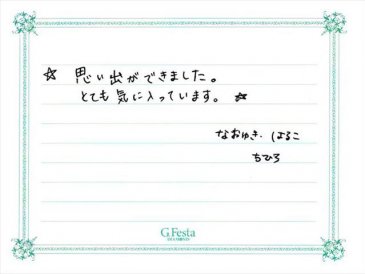 ☆ 思い出ができました。
とても気に入っています。☆
なおゆき. はるこ
ちひろ
G.Festa
DIAMOND